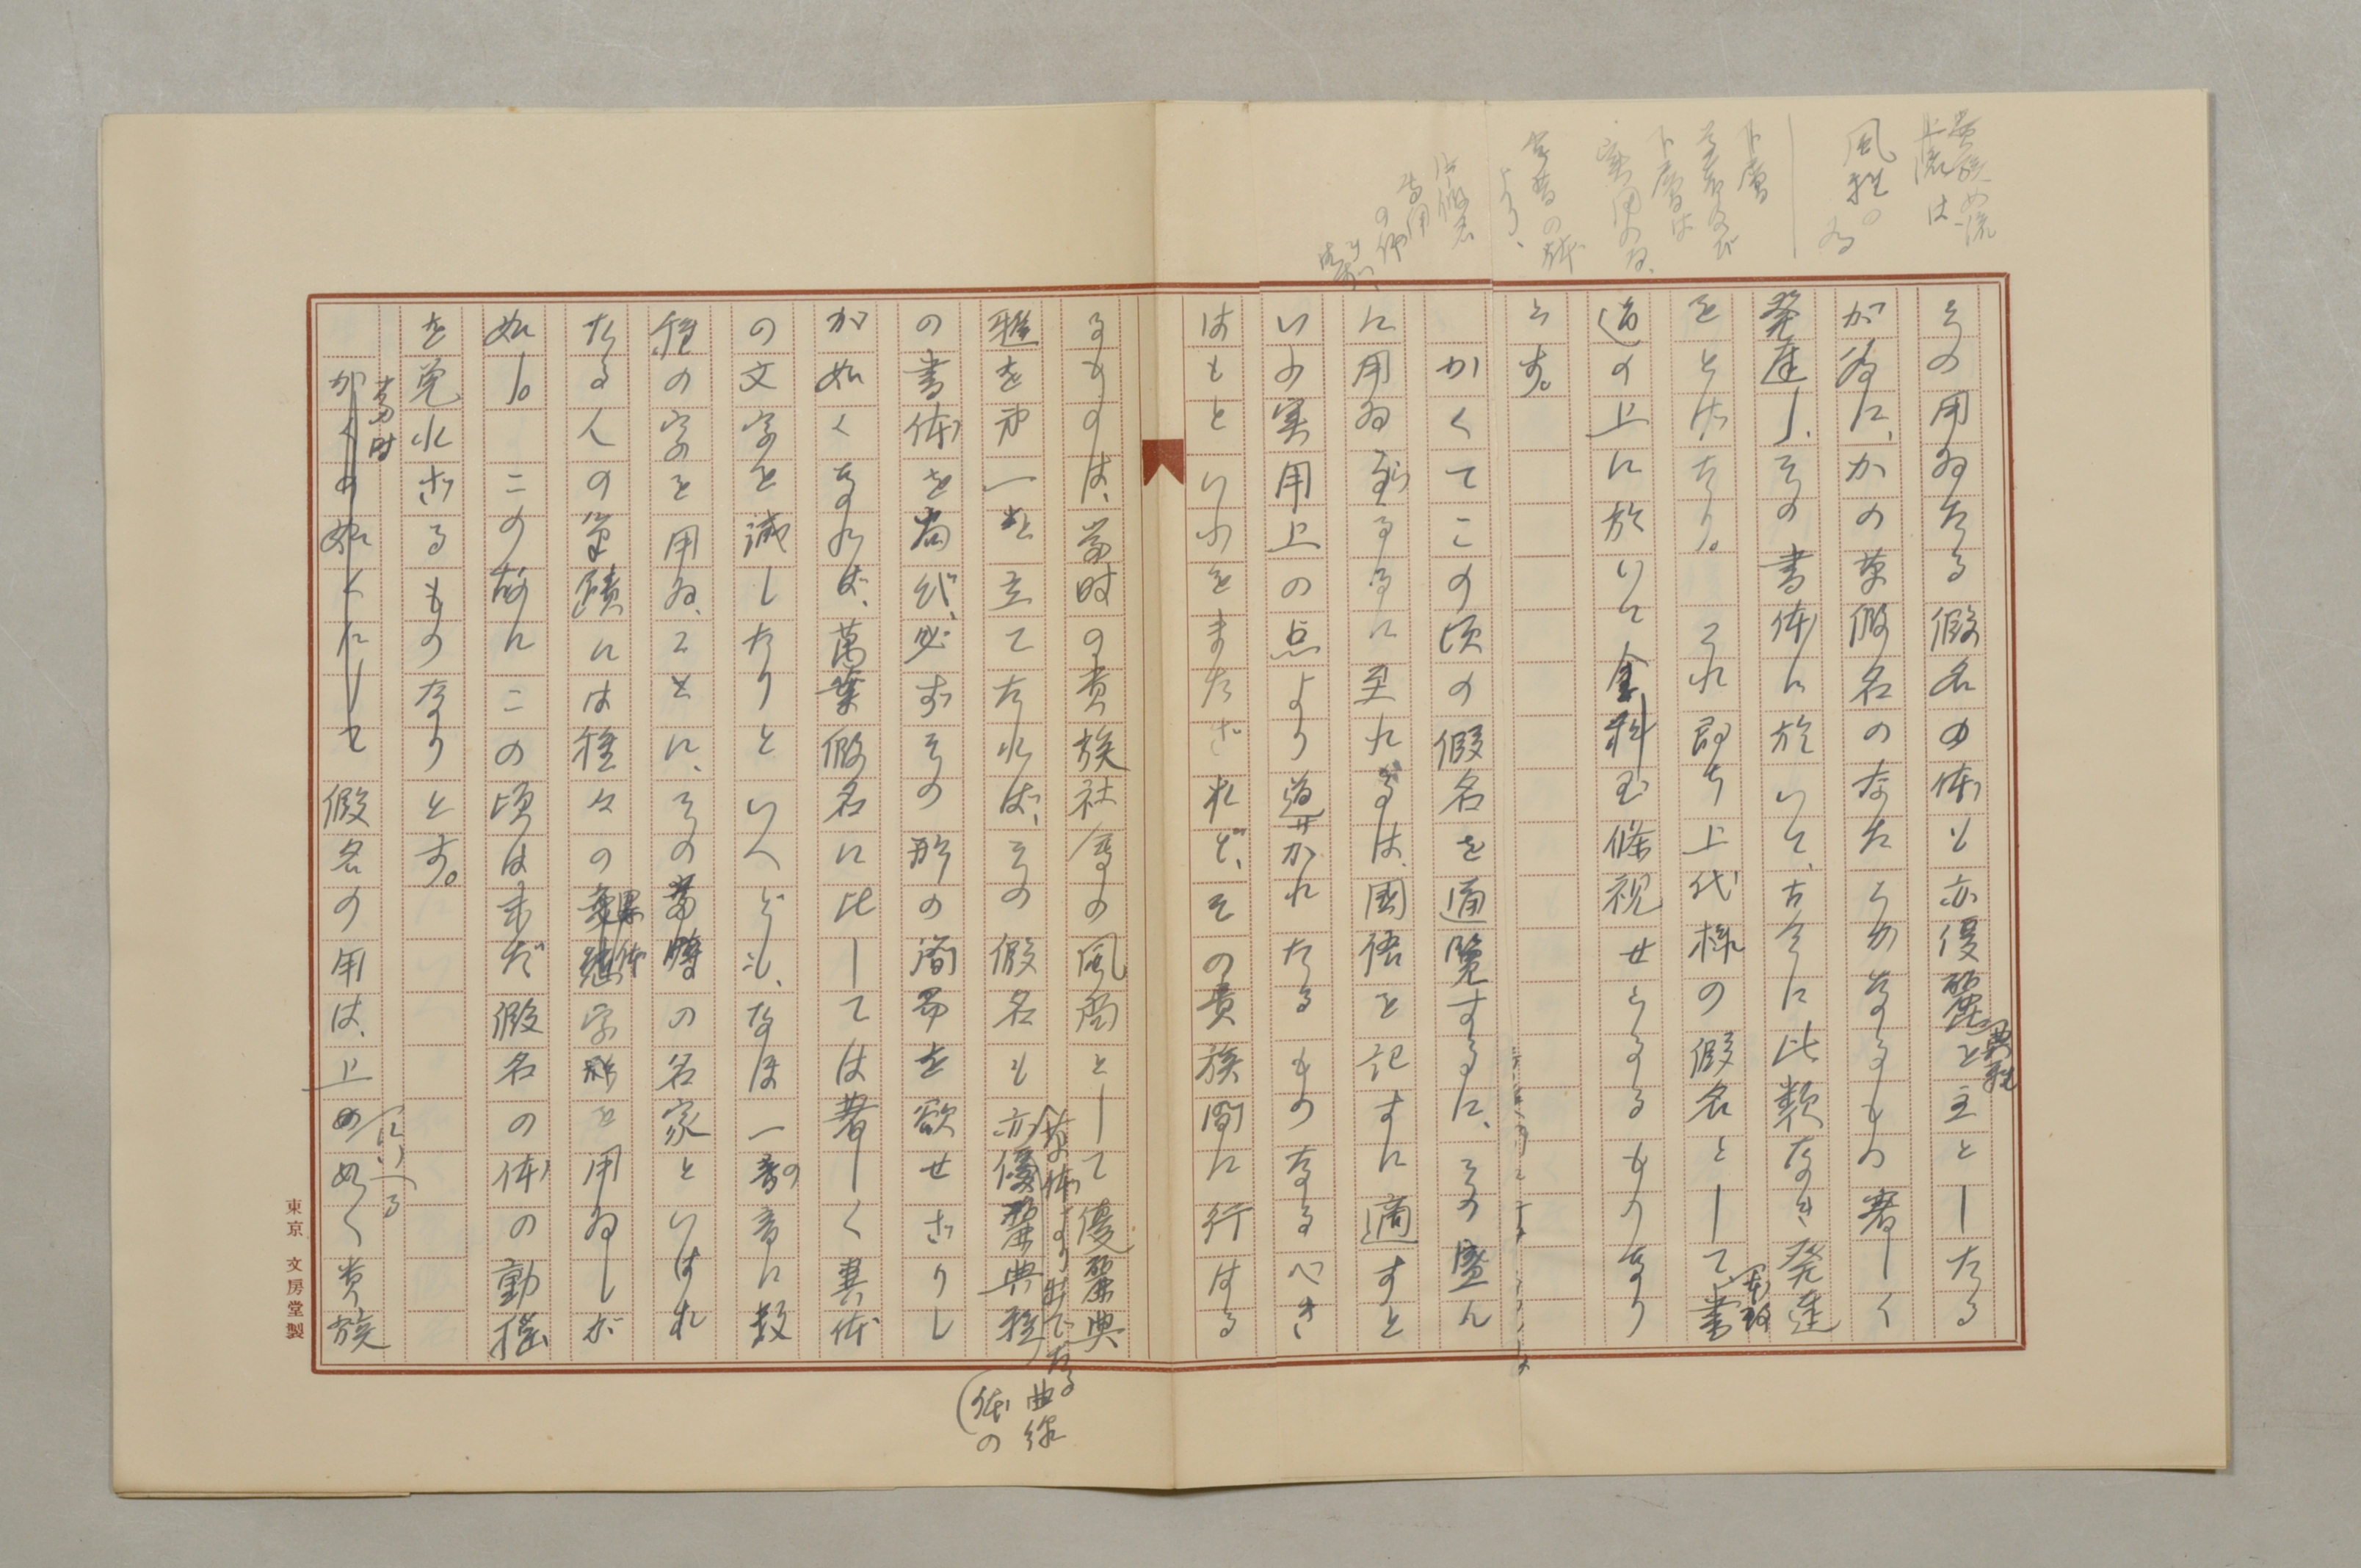 その用ゐたる假名の体も亦優麗典雅を主としたる
が為に、かの草假名のなだらかなるもの著しく
発達し、その書体に於いて、古今に比類なき発達
をとげたり。これ即ち上代様の假名として書
道の上に於いて金科玉條視せらるるものなり
とす。
かくてこの頃の假名を通覧するに、その盛ん
に用ゐらるるに至れるは、國語を記すに適すと
いふ実用上の点より導かれたるものなるべき
はもといふをまたざれど、その貴族間に行はる
るものは、当時の貴族社会の風尚として優麗典
雅を第一に立てたれば、その假名も亦優麗典雅
草体より出でたる曲線
体の
の書体を尚び、必ずその形の簡易を欲せざりし
が如くなれば、萬葉假名に比しては著しく異体
の文字を減じたりといへども、なほ一音の音に数
種の字を用ゐ、ことに、その当時の名家といはれ
たる人の筆蹟には種々の異体字形を用ゐしが
如し。この故にこの頃は未だ假名の体の動揺
を免れざるものなりとす。
当時
かくの如くにして假名の用は、上の如く貴族
にいへる
貴族の流
上流は
風雅の
為
下層
下層は
実用の為、
東京 文房堂製